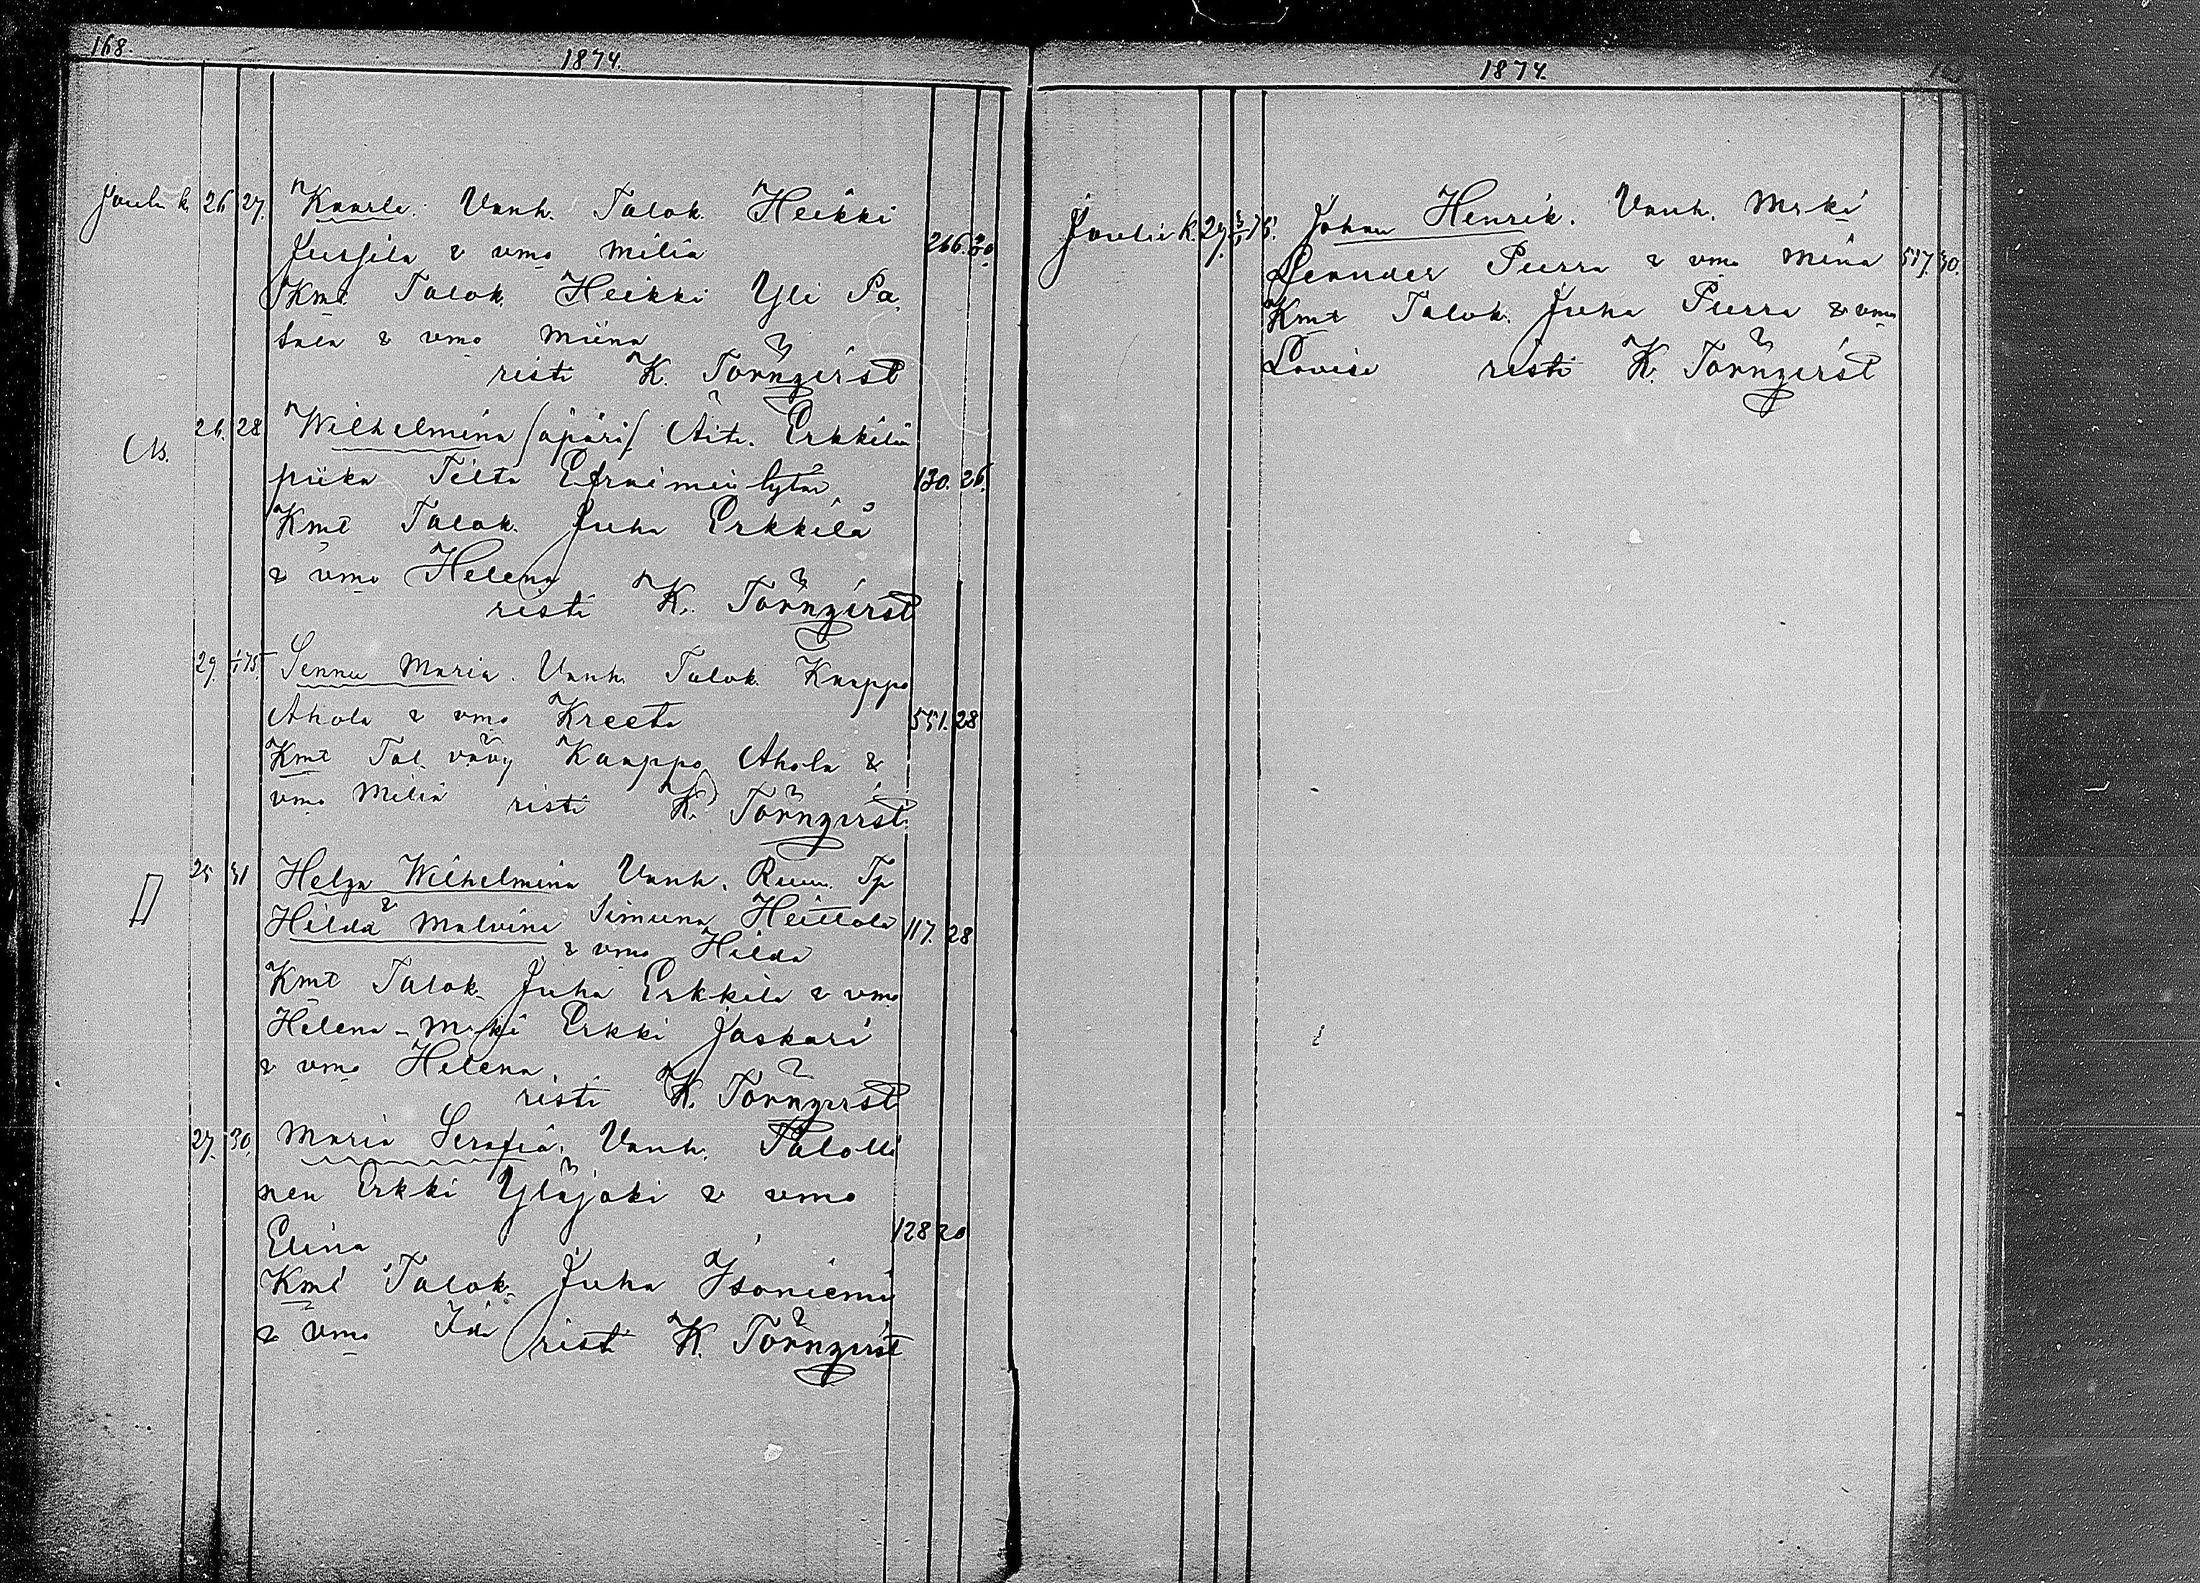 168.
1874.
Joulu k. 26 27. Kaarle. Vanh. Talok. Heikki
Jussila & vmo Milia 266. 30.
Kmt Talok. Heikki Yli Pa
tala & vmo Miina
risti K. Törnqvist
Äb. 26. 28 Wilhelmina /äpärä/. Äiti. Erkkilän
piika Tilta Efraimin tytär 130. 26.
Kmt Talok. Juha Erkkilä
& vmo Helena
risti K. Törnqvist
29. 1/1 75. Sanna Maria. Vanh. Talok. Kaappo
Ahola & vmo Kreeta 551. 28
Kmt Tal. vävy Kaappo Ahola &
vmo Milia risti K. Törnqvist
25 31 Helga Wilhelmina Vanh. Ruun. Tp
& Hilda Malvina Simuna Heittola 117. 28
& vmo Hilda
Kmt Talok. Juha Erkkilä & vmo
Helena - Mäki Erkki Jaskari
& vmo Helena
risti K. Törnqvist
27. 30. Maria Serafia. Vanh. Talolli
nen Erkki Yläjoki & vmo
Elina 128 20
Kmt Talok. Juha Isoniemi
& vmo Ida risti K. Törnqvist
1874.
Joulu k. 29. 3/1 75. Johan Henrik. Vanh. Mäki
Leander Pierra & vmo Mina 517. 30.
Kmt Talok. Juha Pierra & vmo
Lovisa risti K. Törnqvist